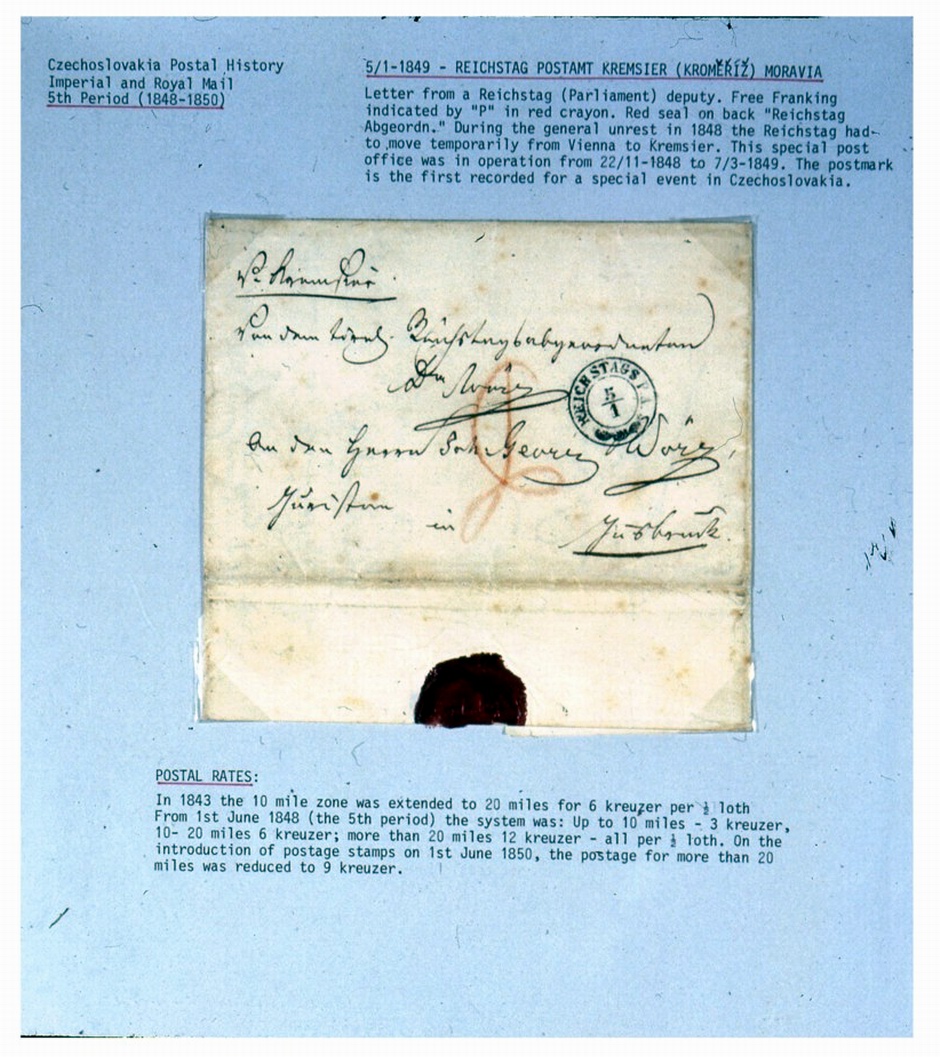 Czechoslovakia Postal History
Imperial and Royal Mail
5th Period (1848-1850)
5/1-1849 - REICHSTAG POSTAMT KREMSIER (KROMĚŘÍŽ) MORAVIA
Letter from a Reichstag (Parliament) deputy. Free Franking
indicated by "P" in red crayon. Red seal on back "Reichstag
Abgeordn." During the general unrest in 1848 the Reichstag had
to move temporarily from Vienna to Kremsier. This special post
office was in operation from 22/11-1848 to 7/3-1849. The postmark
is the first recorded for a special event in Czechoslovakia.
Kremsier
Von dem Reichstagsabgeordneten
REICHSTAGS P. A.
5
1
An den Herrn Joh. Georg Wörz
Juristen
in
Insbruck.
POSTAL RATES:
In 1843 the 10 mile zone was extended to 20 miles for 6 kreuzer per ½ loth
From 1st June 1848 (the 5th period) the system was: Up to 10 miles - 3 kreuzer,
10- 20 miles 6 kreuzer; more than 20 miles 12 kreuzer - all per ½ loth. On the
introduction of postage stamps on 1st June 1850, the postage for more than 20
miles was reduced to 9 kreuzer.